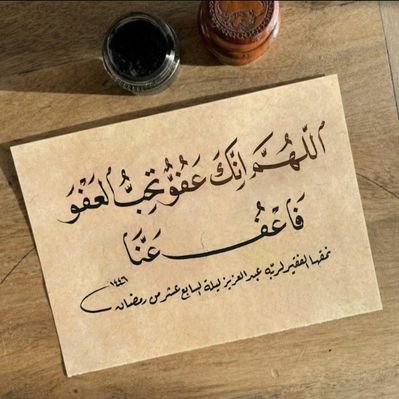 اَللّٰهُمَّ اِنَّكَ عَفُوٌّ تُحِبُّ الْعَفْوَ
فَاعْفُ عَنَّا
نمقها الفقير لربّه عبد العزيز ليلة السابع عشر من رمضان ١٤٤٦